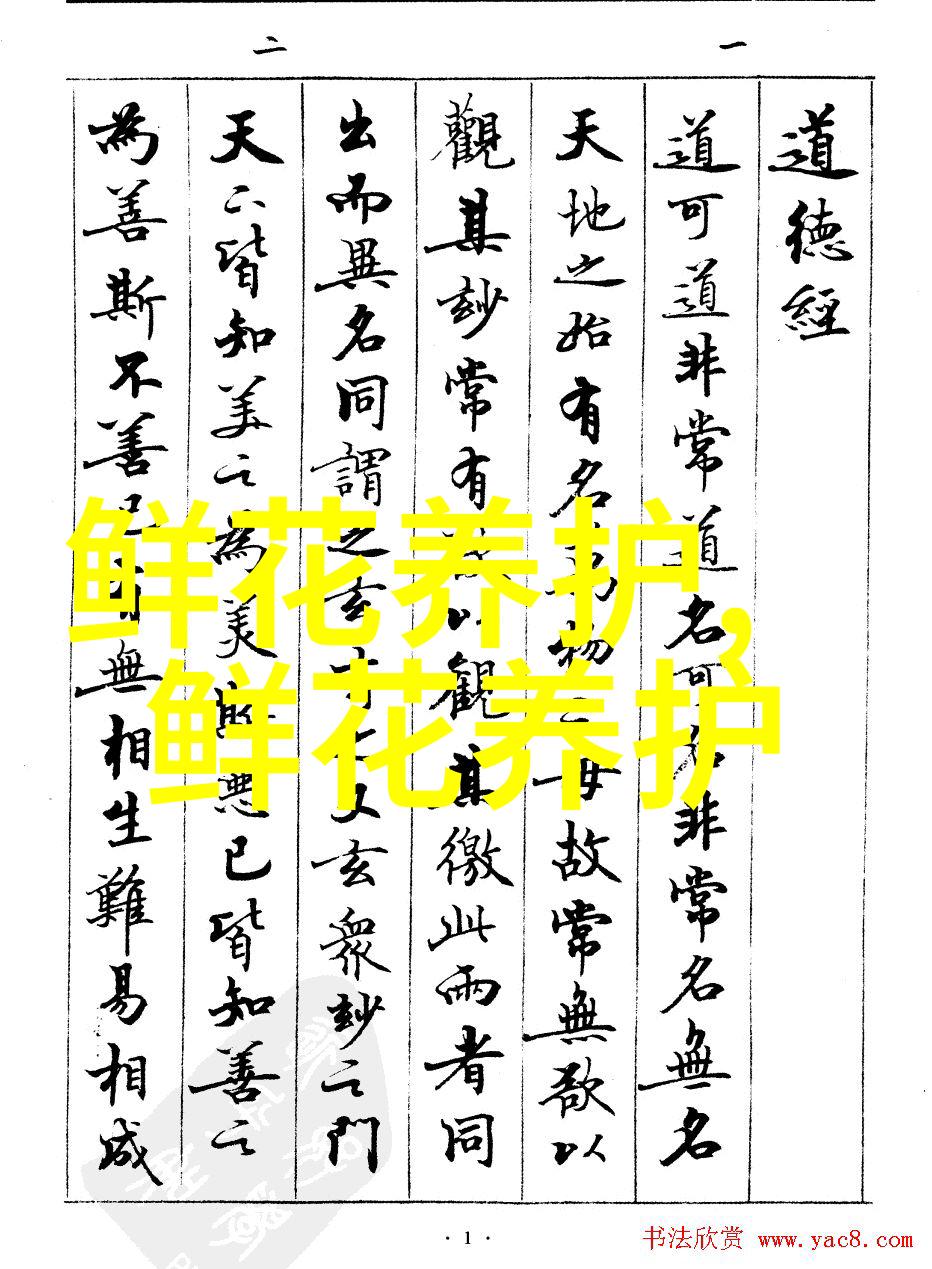 一
二
道德經
道可道非常道名可名非常名無名
天地之始有名萬物之母故常無欲以
觀其玅常有欲以觀其徼此兩者同
出而異名同謂之玄之又玄眾玅之門
天下皆知美之為美斯惡已皆知善之
為善斯不善已有無相生難易相成
鲜花养护,
鲜花养护
· 1 ·
书法欣赏 www.yac8.com